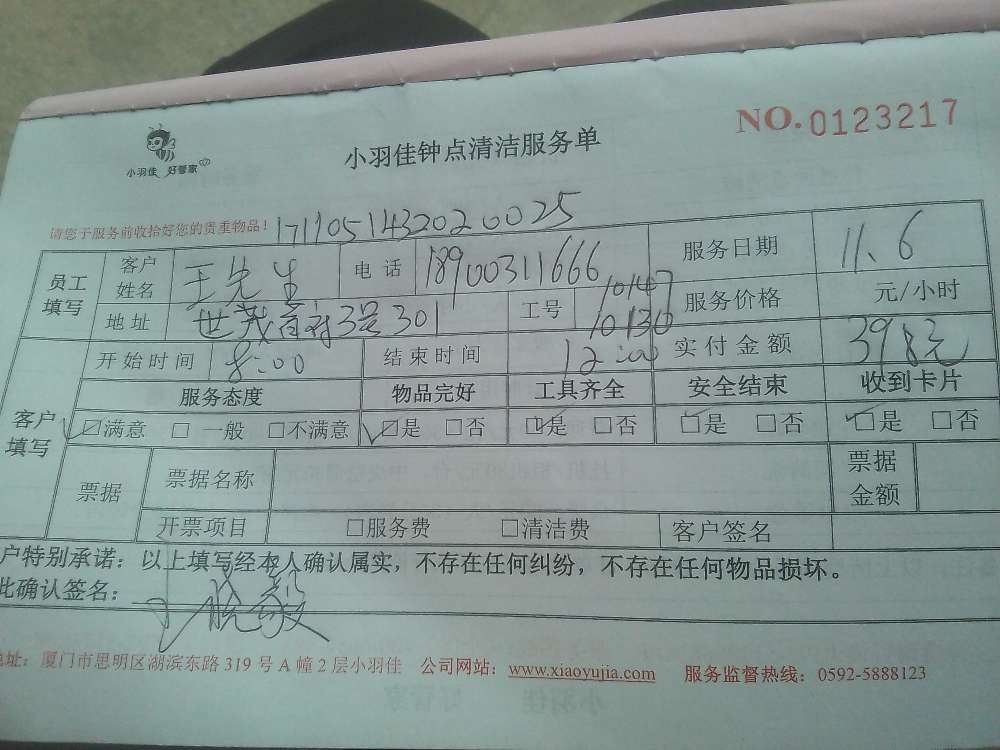 小羽佳 好管家
小羽佳钟点清洁服务单
NO.0123217
请您于服务前收拾好您的贵重物品!
17110514320200025
员工填写 客户姓名 王先生 电话 18900311666 服务日期 11.6
地址 世茂 3号301 工号 10147 10130 服务价格 元/小时
开始时间 8:00 结束时间 12:00 实付金额 398元
客户填写 服务态度 物品完好 工具齐全 安全结束 收到卡片
☑满意 □一般 □不满意 ☑是 □否 ☑是 □否 ☑是 □否 ☑是 □否
票据 票据名称 票据金额
开票项目 □服务费 □清洁费 客户签名
户特别承诺:以上填写经本人确认属实,不存在任何纠纷,不存在任何物品损坏。
此确认签名:
地址:厦门市思明区湖滨东路 319 号 A 幢 2 层小羽佳 公司网站:www.xiaoyujia.com 服务监督热线:0592-5888123